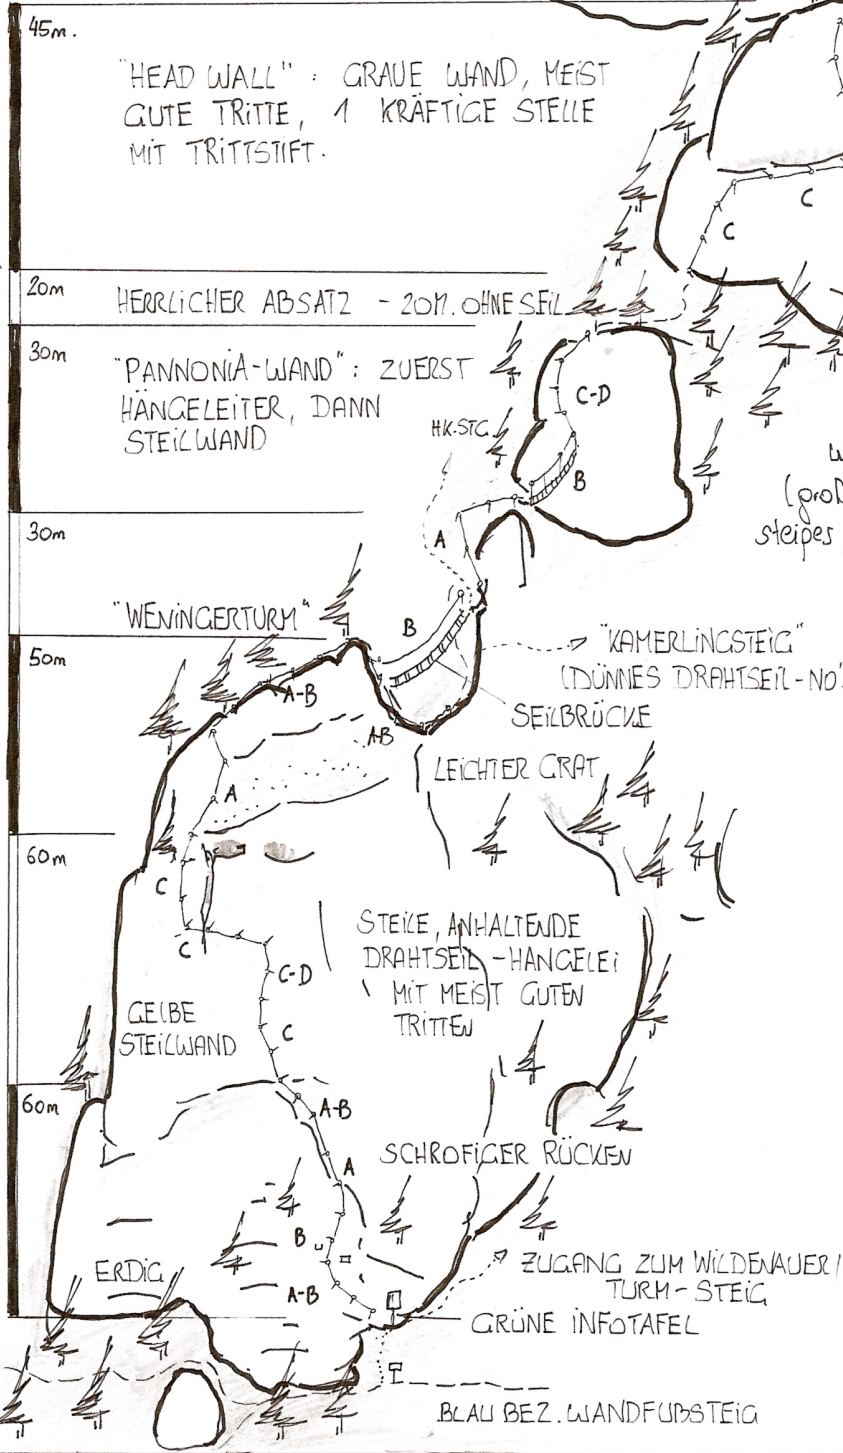 45m.
"HEAD WALL" : GRAUE WAND, MEIST
GUTE TRITTE, 1 KRÄFTIGE STELLE
MIT TRITTSTIFT.
C
C
20m
HERRLICHER ABSATZ - 20M. OHNE SEIL
30m
"PANNONIA-WAND": ZUERST
HÄNGELEITER, DANN
STEILWAND
C-D
HK-STG.
B
(groß
steiles
30m
A
"WENINGERTURM"
B
50m
"KAMERLINGSTEIG"
(DÜNNES DRAHTSEIL-NO
A-B
SEILBRÜCKE
A-B
LEICHTER GRAT
A
60m
C
C
STEILE, ANHALTENDE
DRAHTSEIL-HANGELEI
MIT MEIST GUTEN
TRITTEN
C-D
GELBE
STEILWAND
C
60m
A-B
SCHROFIGER RÜCKEN
A
B
ERDIG
A-B
ZUGANG ZUM WILDENAUER/
TURM-STEIG
GRÜNE INFOTAFEL
BLAU BEZ. WANDFUßSTEIG